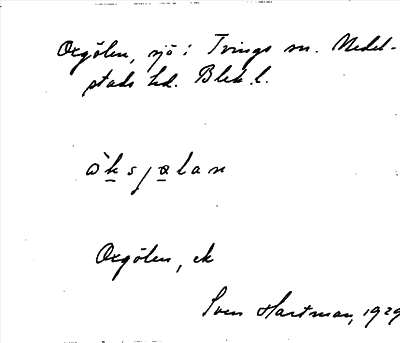 Oxgölen, sjö i Tvings sn. Medel-
stads hd. Blek. l.
ò̀ksjølan
Oxgölen, ek
Sven Hartman, 1929